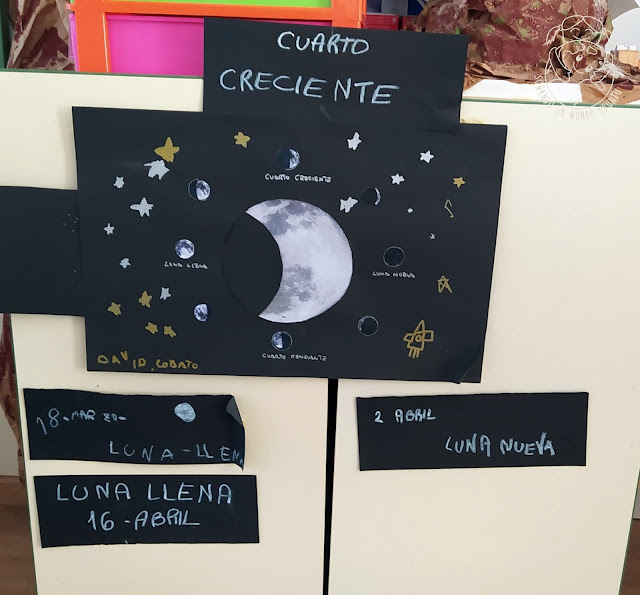 CUARTO
CRECIENTE
CUARTO CRECIENTE
LUNA LLENA
LUNA NUEVA
CUARTO MENGUANTE
DAVID. COBATO
18-MAR ZO-
LUNA-LLEN
LUNA LLENA
16-ABRIL
2 ABRIL
LUNA NUEVA